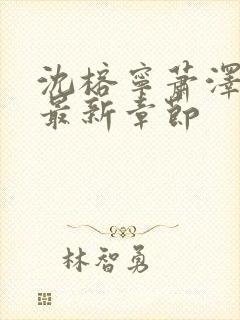 沈榕寧蕭澤
最新章節
林智勇